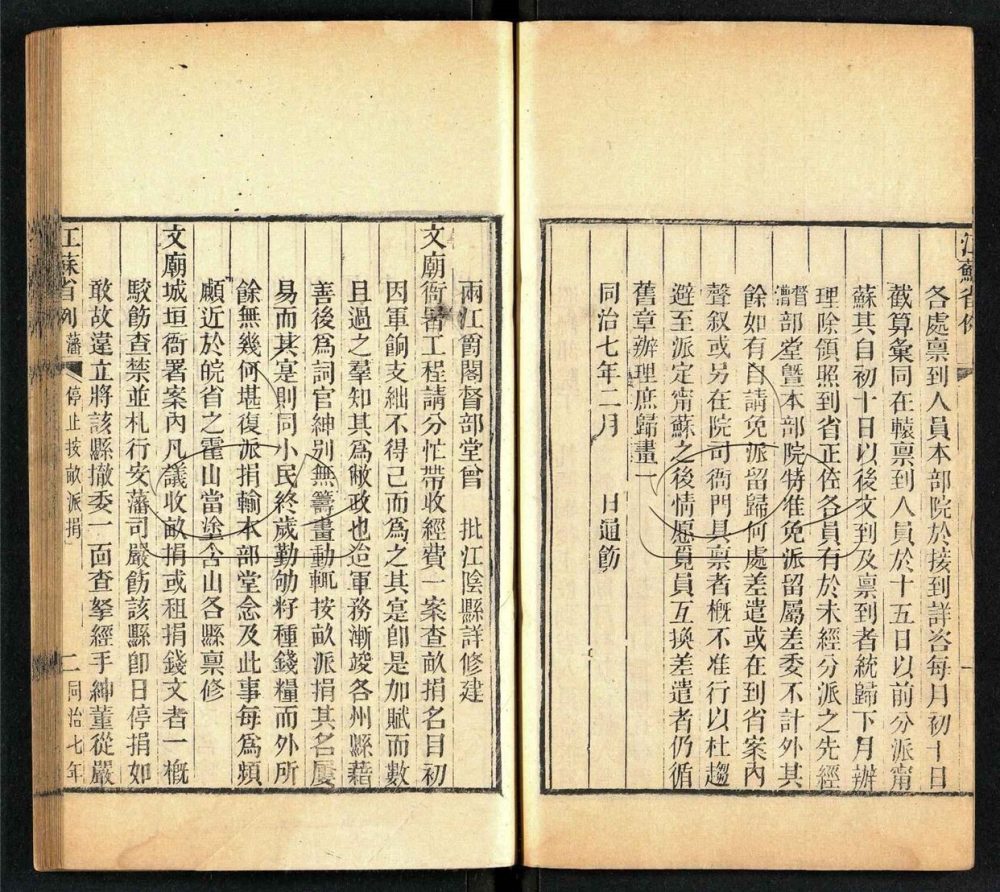 江蘇省例
各處禀到人員本部院於接到詳咨每月初十日
截算彙同在轅禀到人員於十五日以前分派甯
蘇其自初十日以後文到及禀到者統歸下月辦
理除領照到省正佐各員有於未經分派之先經
督漕部堂曁本部院特准免派留屬差委不計外其
餘如有自請免派留歸何處差遣或在到省案內
聲叙或另在院司衙門具禀者槪不准行以杜趨
避至派定甯蘇之後情愿覓員互換差遣者仍循
舊章辦理庶歸畫一
同治七年二月　　日通飭
兩江爵閣督部堂曾　批江陰縣詳修建
文廟衙署工程請分忙帶收經費一案查畝捐名目初
因軍餉支絀不得已而爲之其寔卽是加賦而數
且過之羣知其爲敝政也迨軍務漸竣各州縣藉
善後爲詞官紳别無籌畫動輒按畝派捐其名屢
易而其寔則同小民終歲勤劬籽種錢糧而外所
餘無幾何堪復派捐輸本部堂念及此事每爲頻
顣近於皖省之霍山當塗含山各縣禀修
文廟城垣衙署案內凡議收畝捐或租捐錢文者一槪
駮飭查禁並札行安藩司嚴飭該縣卽日停捐如
敢故違立將該縣撤委一面查拏經手紳董從嚴
江蘇省例　藩　停止按畝派捐　二　同治七年